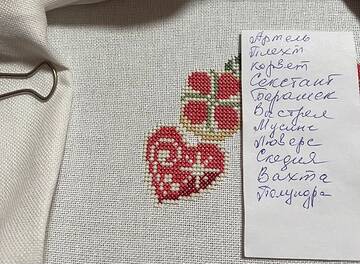 Артель
Плехт
Корвет
Секстант
Барашек
Вострел
Мусинг
Люверс
Скедия
Вахта
Полундра